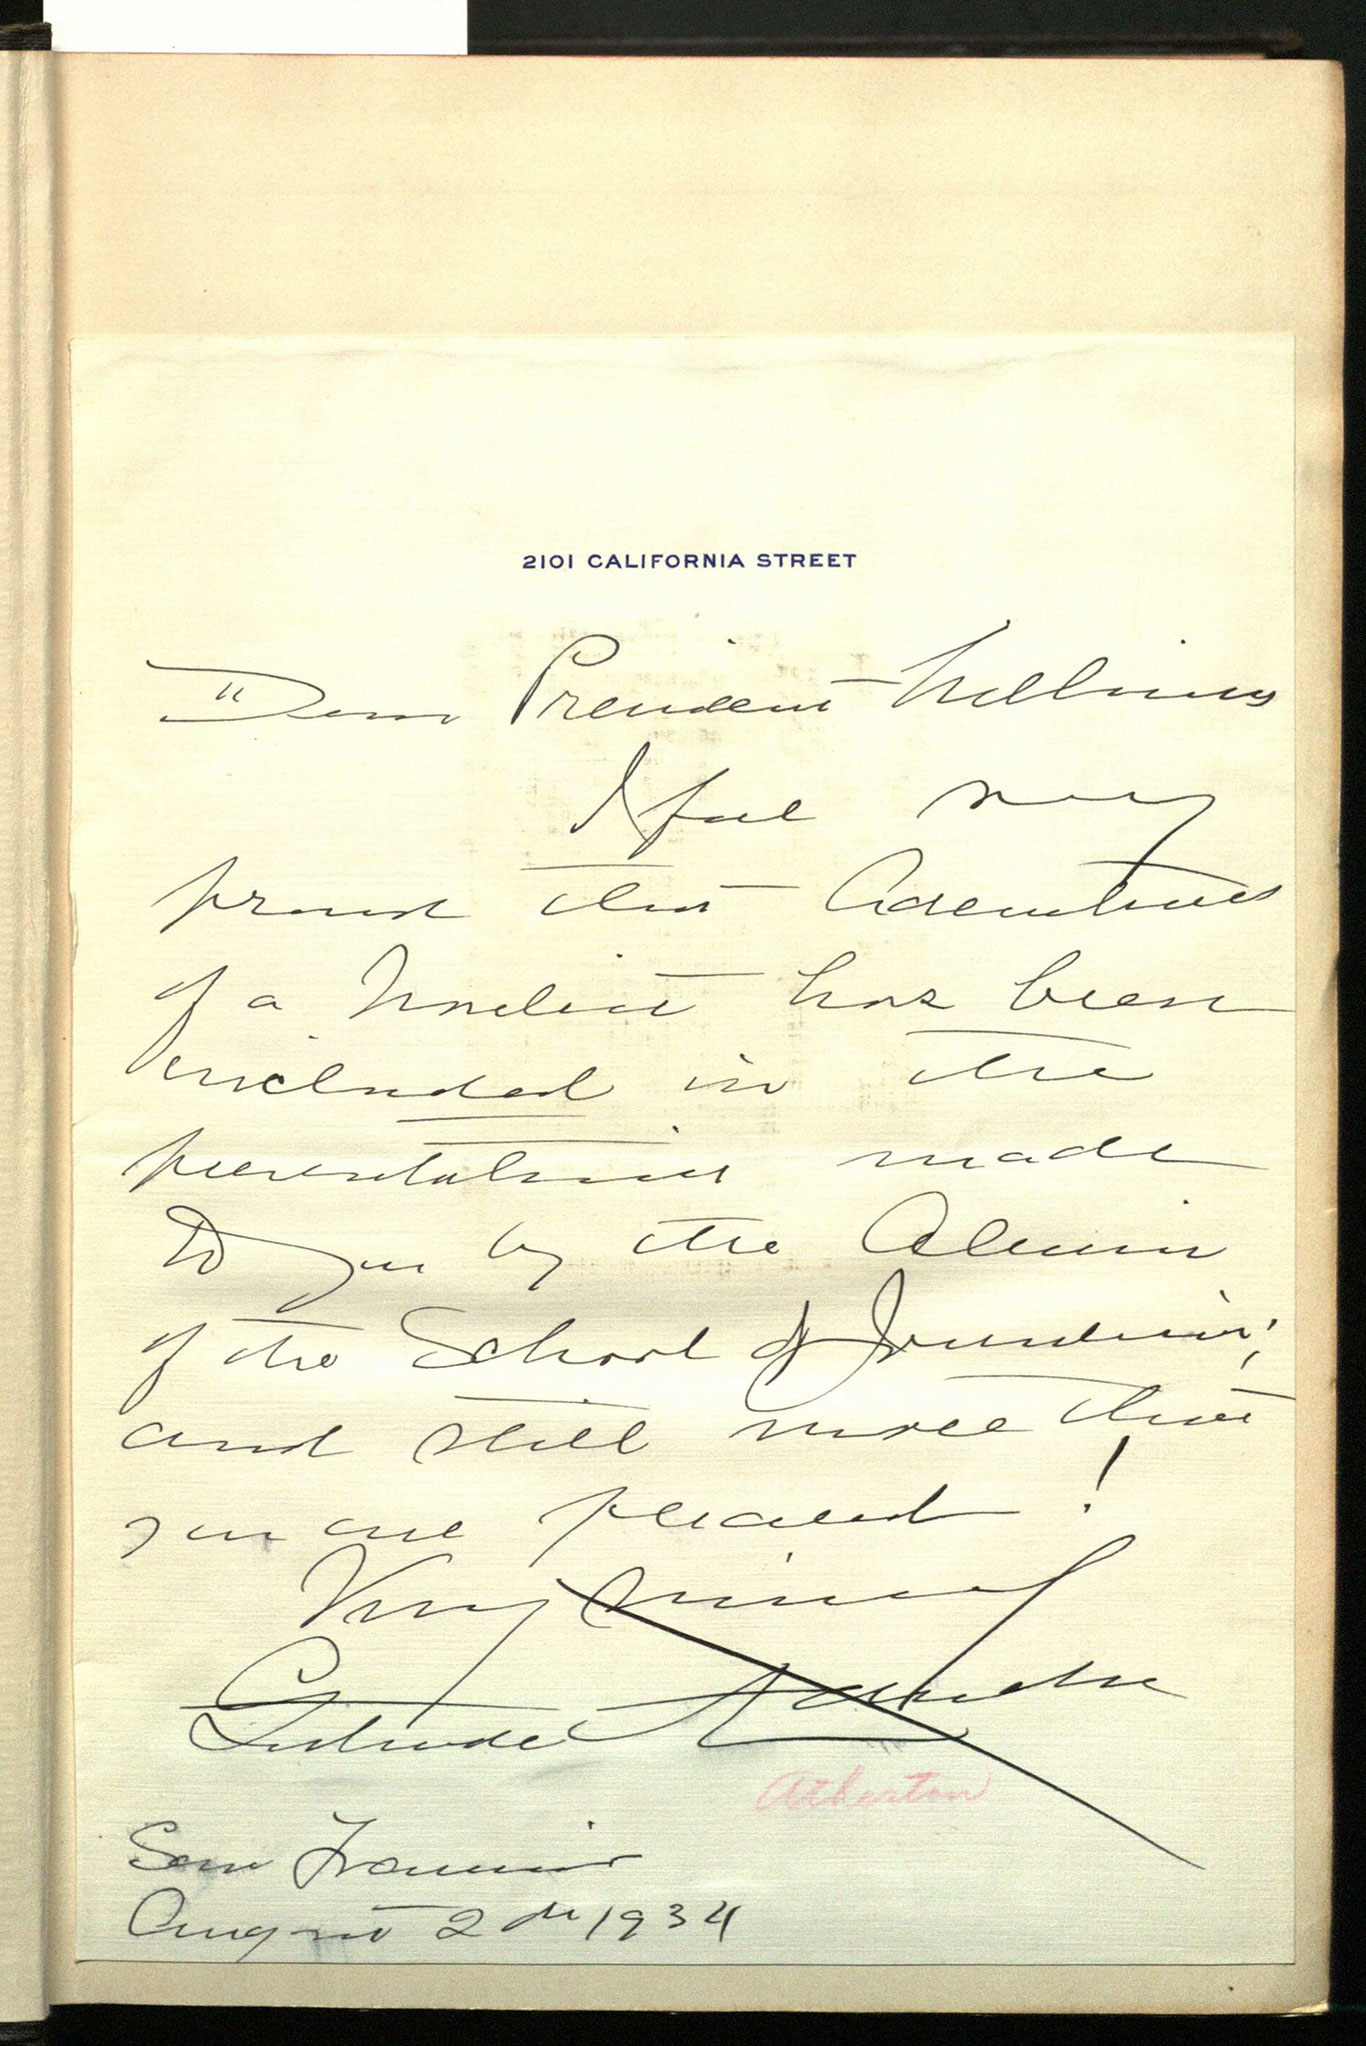 2101 CALIFORNIA STREET
Dear President Williams
I feel very
proud that Adventures
of a Novelist has been
included in the
presentation made
to you by the Alumni
of the School of Journalism,
and still more that
you are pleased!
Very sincerely
Gertrude Atherton
Atherton
San Francisco
August 2nd 1934